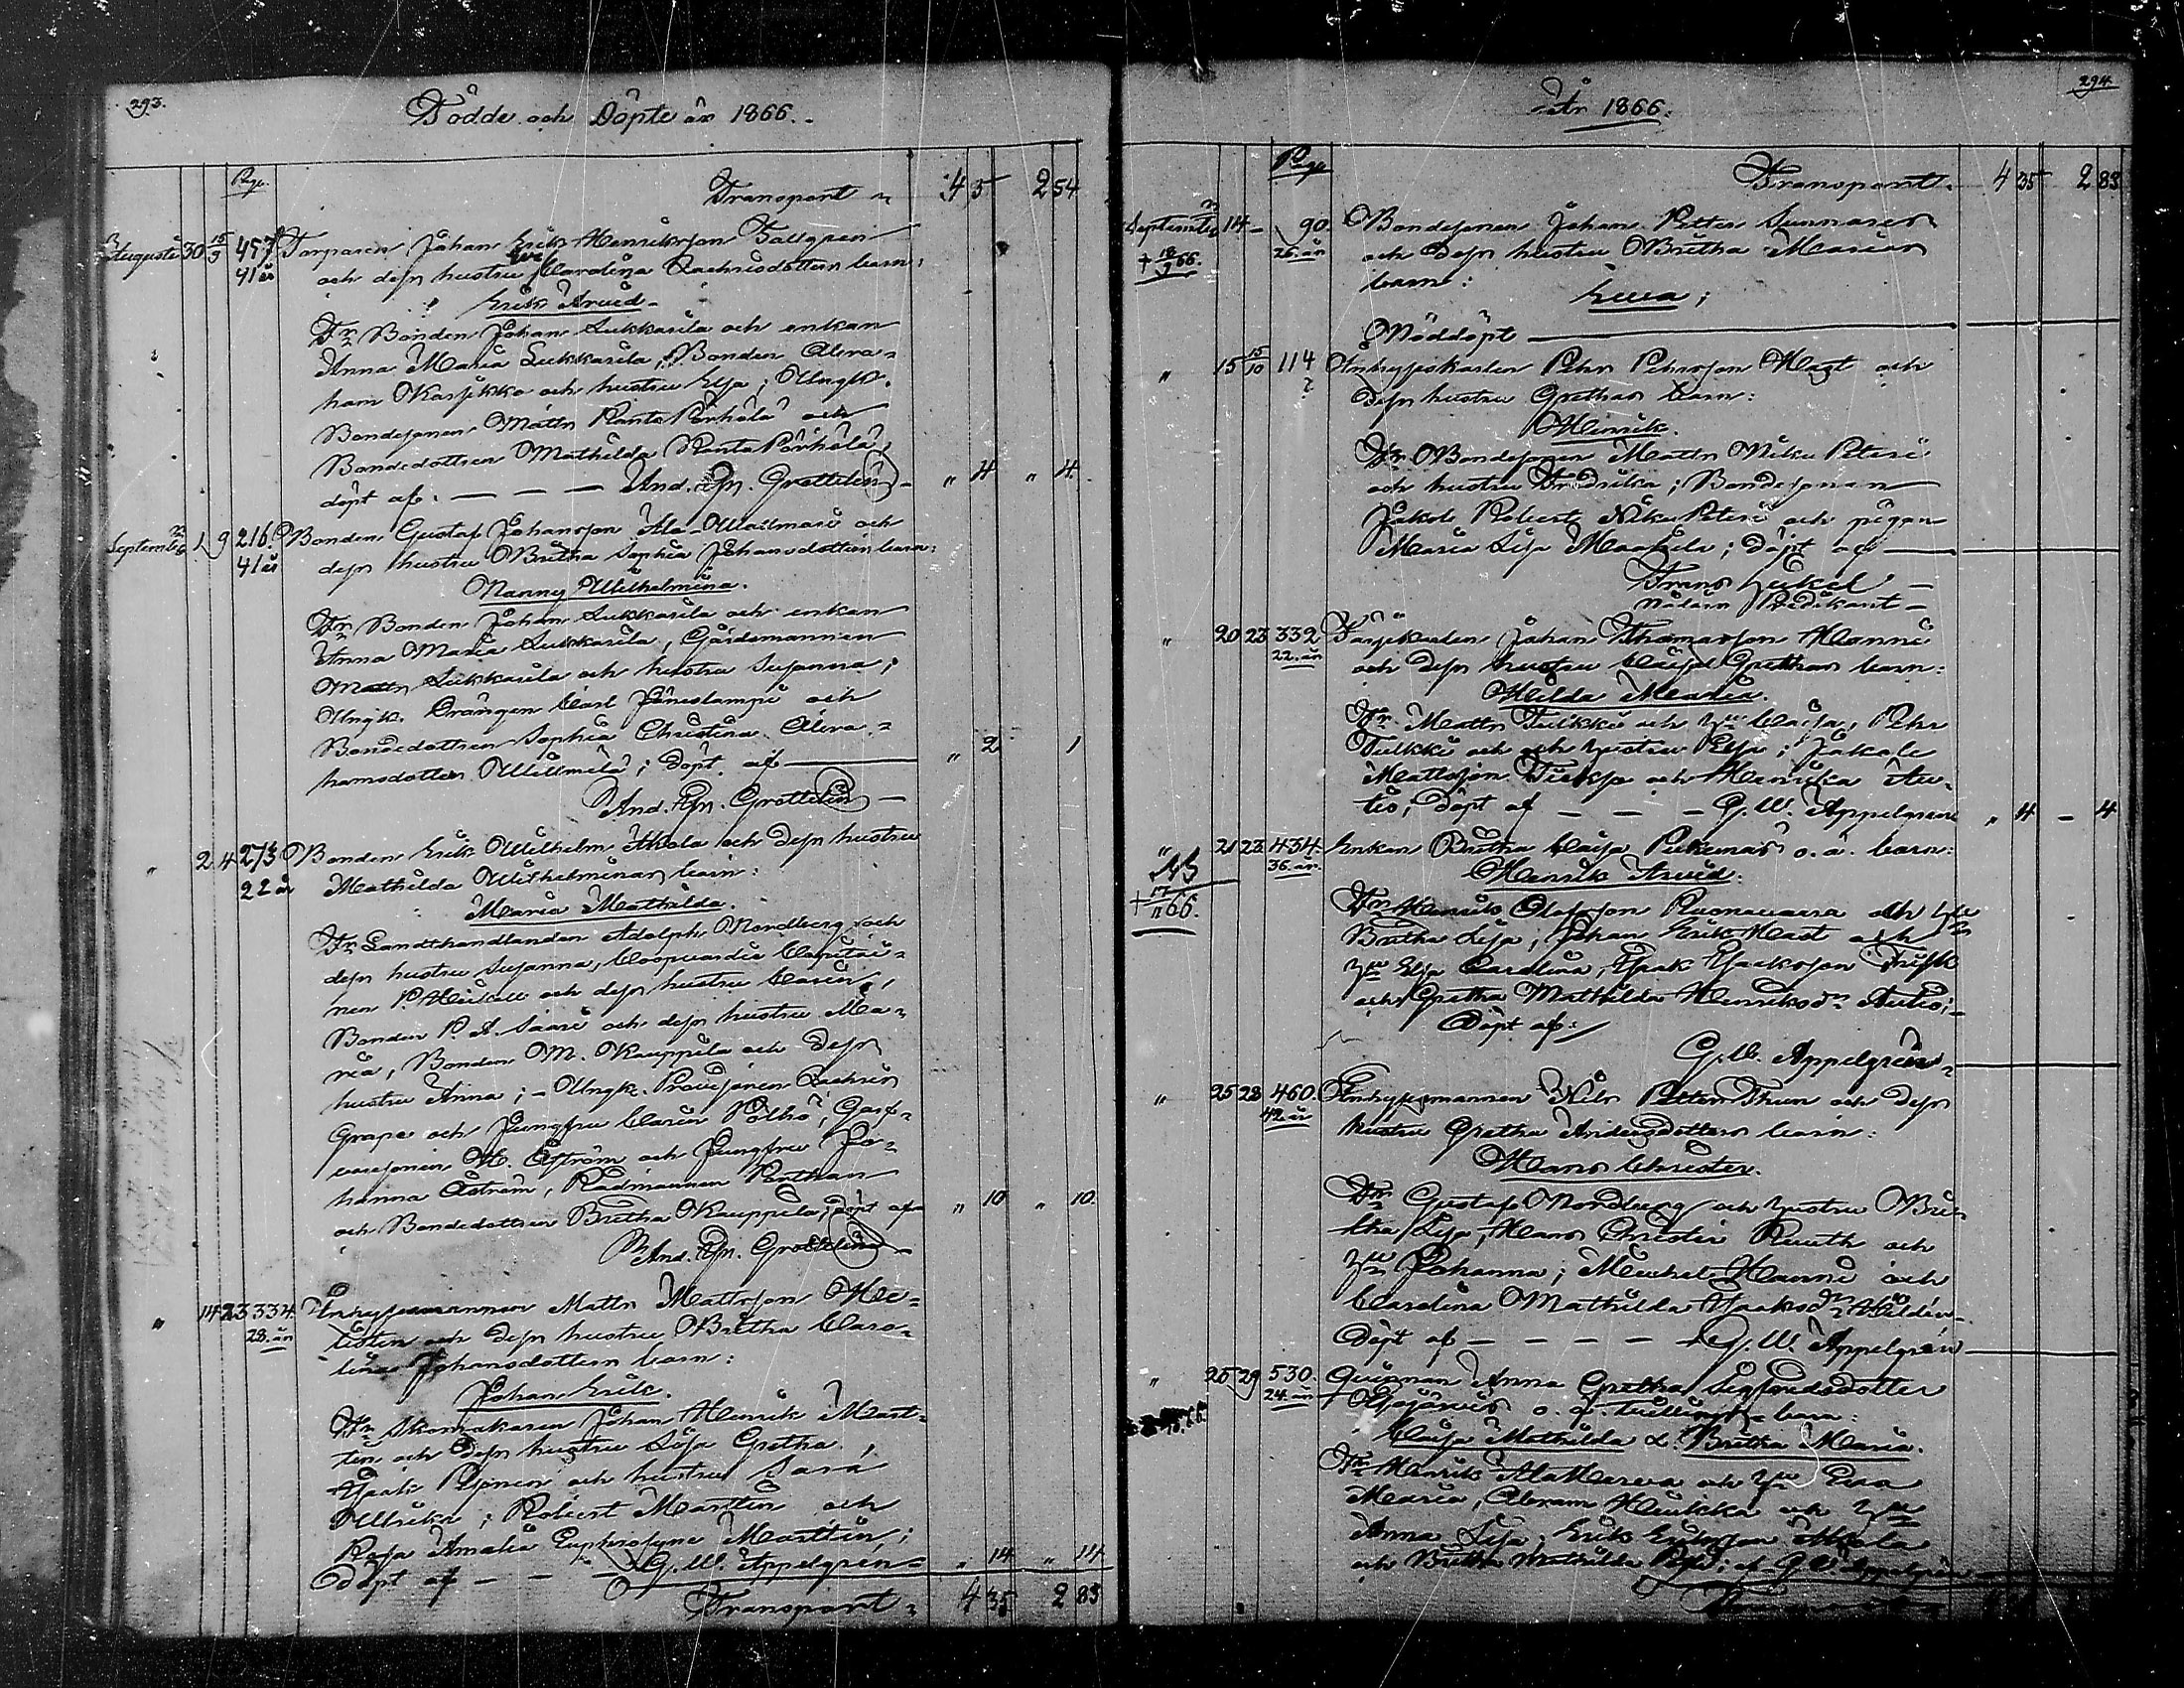 293.
Födde och Döpte år 1866.
Page.
Transport 4 5 2 54
Augusti 30 15/9 457 Torparen Johan Erik Henriksson Tallgren
41 år och dess hustru Eva Carolina Zachrisdotters barn:
Erik Arvid
Fr Bonden Johan Lukkarila och enkan
Anna Maria Lukkarila; Bonden Abra-
ham Karjikko och hustru Elsa; Ungk.
Bondesonen Matts Ranta Pörhölä och
Bondedottren Mathilda Ranta Pörhölä;
döpt af: — — — And. Joh. Grottelin " 4 " 4.
September 1 9 216 Bonden Gustaf Johansson Ala-Wallmari och
41 år dess hustru Britha Sophia Johansdotters barn:
Nanny Wilhelmina.
Fr Bonden Johan Lukkarila och enkan
Anna Maria Lukkarila, Gårdsmannen
Matts Lukkarila och hustru Susanna;
Ungk. Drängen Carl Jäneslampi och
Bondedottren Sophia Christina Abra-
hamsdotter Willmila; döpt af — " 2 1
And. Joh. Grottelin —
" 2 4 273 Bonden Erik Wilhelm Akola och dess hustru
22 år Mathilda Wilhelminas barn:
Maria Mathilda.
Fr Landthandlanden Adolph Nordberg och
dess hustru Susanna, Coopvardie Capitai-
nen P. Heikell och dess hustru Carin,
Bonden P. A. Saari och dess hustru Ma-
ria, Bonden M. Kauppila och dess
hustru Anna; – Ungk. Provisoren Zachris
Grape och Jungfru Carin Pölhö, Garf-
varesonen H. Åström och Jungfru Jo-
hanna Åström, Rådmannen Perthan
och Bondedottren Britha Kauppila; döpt af " 10 " 10.
And. Joh. Grottelin
" 14 23 334. Inhysesmannen Matts Mattsson Hee-
28. år listen och dess hustru Britha Caro-
lina Johansdotters barn:
Johan Erik.
Fr Skomakaren Johan Henrik Mart-
tin och dess hustru Lisa Gretha,
Isaak Piponen och hustru Sara
Ulrika; Robert Marttin och
Rosa Amalia Euphrosyne Marttin;
döpt af — — — G. W. Appelgren " 14 " 14
Transport 4 35 2 83
294.
År 1866.
Page
Transport. 4 35 2 83
September 14 – 90. Bondesonen Johan Petter Sunnares
† 18/9 66. 26. år och dess hustru Britha Marias
barn: Eva;
Nöddöpt —
" 15 15/10 114 Inhyseskarlen Pehr Pehrsson Hast och
dess hustru Grethas barn:
Henrik.
Fr Bondesonen Matts Niku Peteri
och hustru Fredrika; Bondesonen
Jakob Robert Niku Peteri och pigan
Maria Lisa Maaherla; döpt af —
Frans Heikel —
nådårs Predikant —
" 20 23 332 Färjekarlen Johan Thomasson Hanni
22. år och dess hustru Caisa Grethas barn:
Hilda Maria.
Fr. Matts Tulkki och hu Caisa, Pehr
Tulkki och och hustru Elsa; Jakob
Mattsson Tiekso och Henrika Au-
tio; döpt af — — — G. W. Appelgren " 4 – 4
" 21 23 434. Enkan Britha Caisa Pukemas o. ä. barn:
NB 36. år. Henrik Arvid.
† 17/11 66. Fr Henrik Olofsson Ruonavaara och hu
Britha Lisa; Johan Erik Hast och
hu Elsa Carolina, Isaak Isaksson Frisk
och Gretha Mathilda Henriksdr Autio;
döpt af:
G. W. Appelgren
" 25 28 460. Inhysesmannen Nils Petter Thun och dess
42 år hustru Gretha Andersdotters barn:
Hans Christer.
Fr Gustaf Nordberg och hustru Bri-
tha Lisa, Hans Christer Ruuth och
hu Johanna; Michel Hanni och
Carolina Mathilda Isaksdr Wildén
döpt af — — — — G. W. Appelgren
" 25 29 530. Qvinnan Anna Gretha Sigfredsdotter
24. år Alajärvis o. ä. tvillings-barn:
Caisa Mathilda & Britha Maria.
Fr Henrik Alatlarva och hu Eva
Maria, Abram Heikka och hu
Anna Lisa; Erik Eriksson Akola
och Britha Mathilda; af G. W. Appelgren